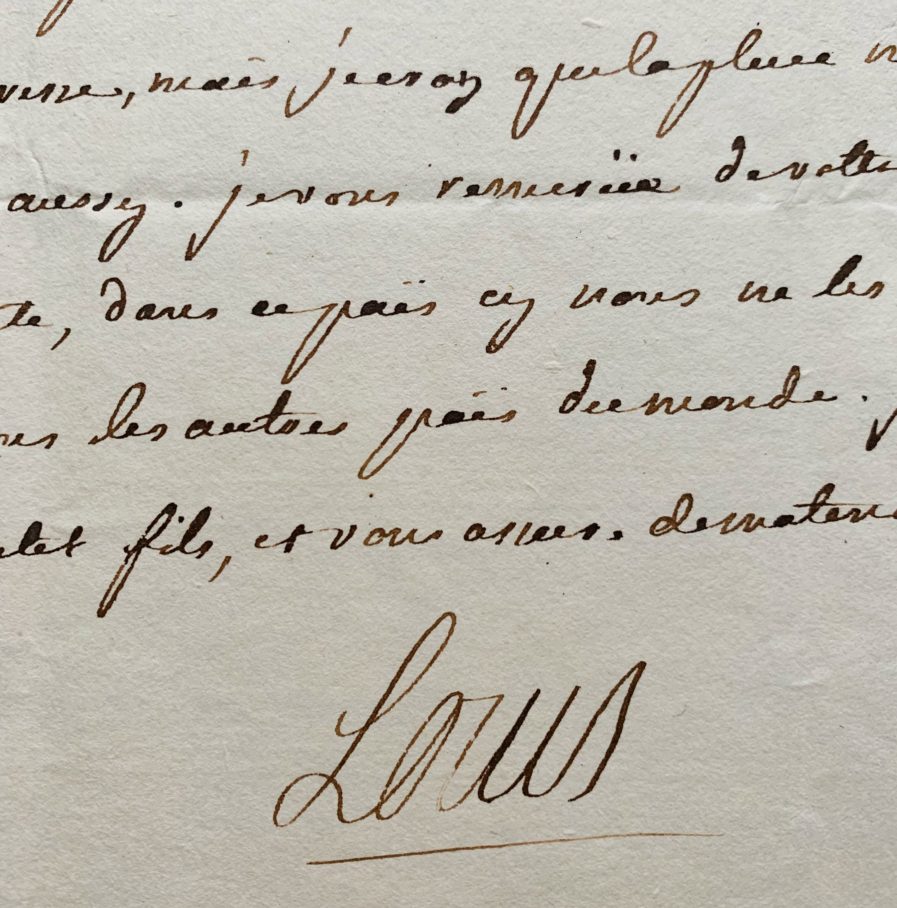 mais je croy que la pluee
aussy. je vous remersüe de votte
dans ce païs cy nous ne les
les autres païs du monde.
fils, et vous assure. de ma tend
Louis